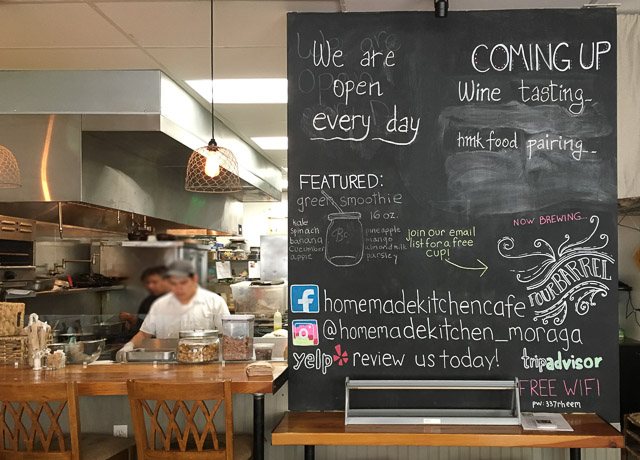 We are
open
every day
COMING UP
Wine tasting
hmk food pairing
FEATURED:
green smoothie
16 oz.
kale
spinach
banana
cucumber
apple
pineapple
mango
almond milk
parsley
join our email
list for a free
cup!
NOW BREWING...
FOUR BARREL
f homemadekitchencafe
@homemadekitchen_moraga
yelp review us today!
tripadvisor
FREE WIFI
pw: 337rheem